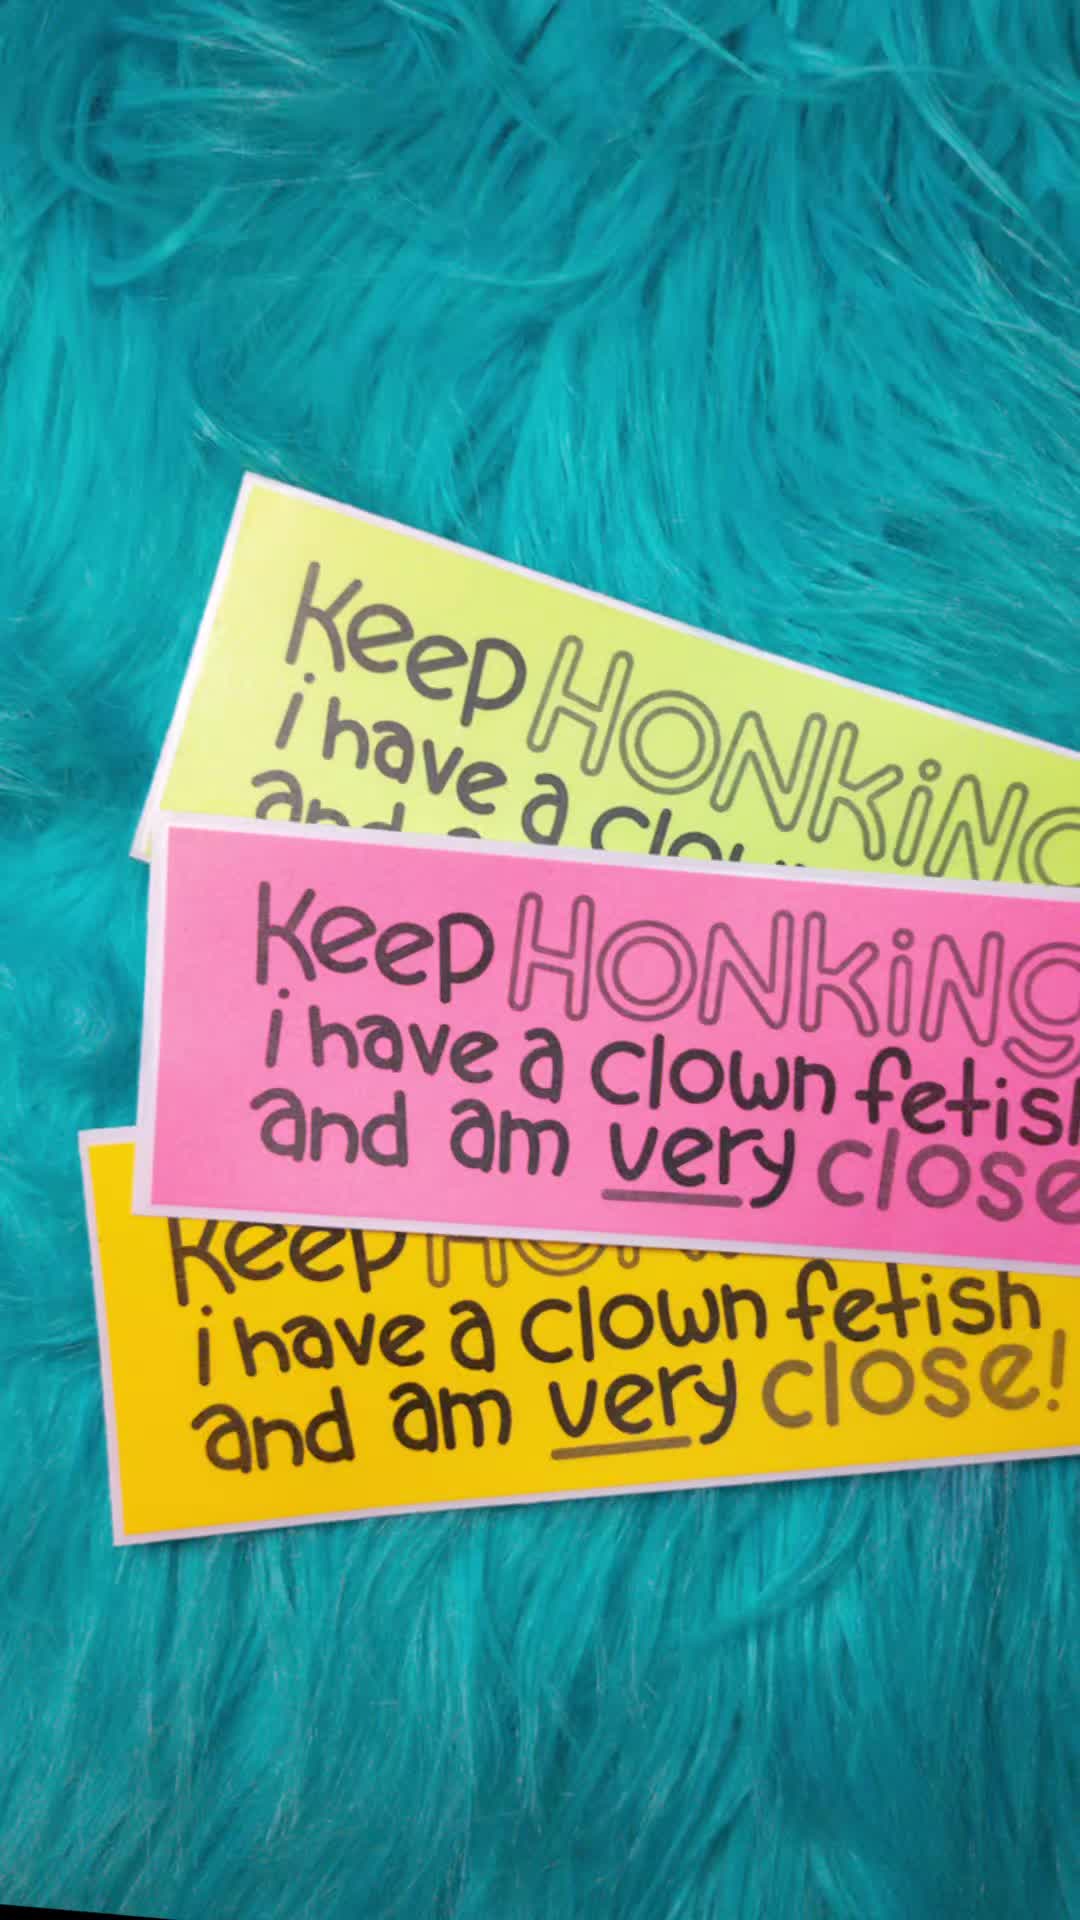 Keep HONKiNG
i have a
Keep HONKiNg
i have a clown fetish
and am very close
Keep
i have a clown fetish
and am very close!